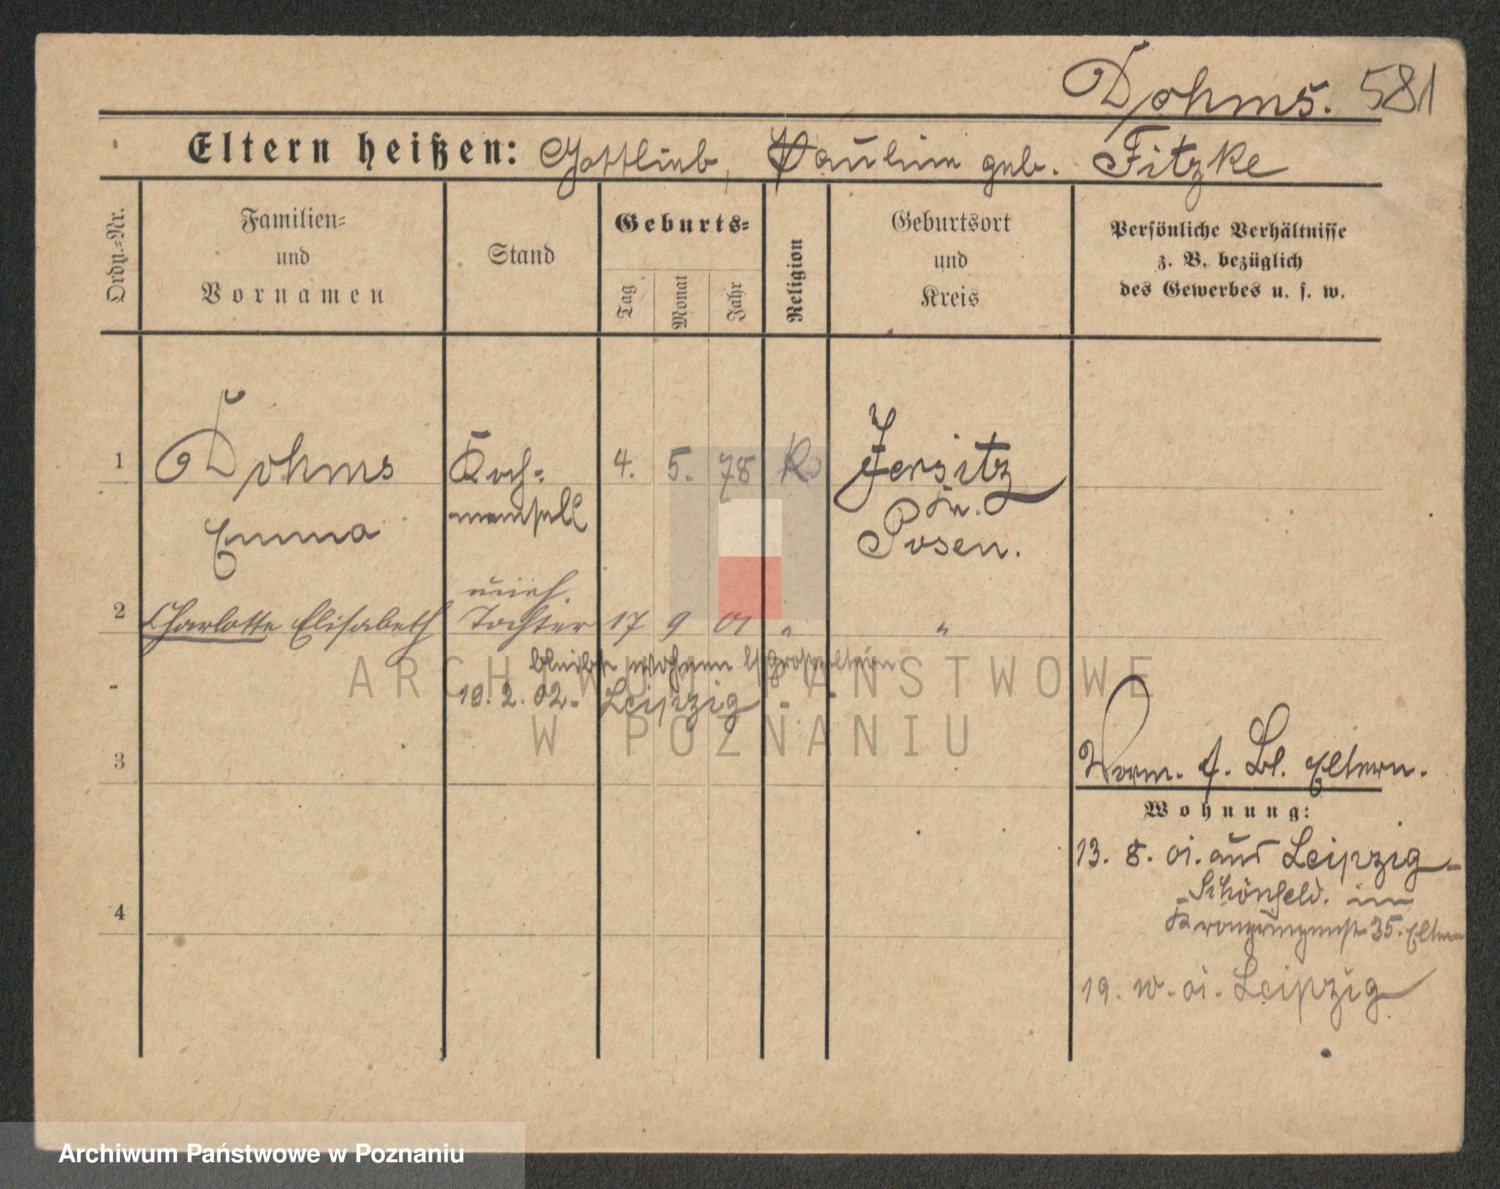 Dohms. 581
Eltern heißen: Gottlieb, Pauline geb. Fitzke
Ordn.-Nr.
Familien-
und
Vornamen
Stand
Geburts-
Tag
Monat
Jahr
Religion
Geburtsort
und
Kreis
Persönliche Verhältnisse
z. B. bezüglich
des Gewerbes u. s. w.
1 Dohms Koch- 4. 5. 78 Jersitz
mamsell Kr.
Emma Posen.
uneh.
2 Charlotte Elisabeth Tochter 17 9 01 " "
bleibt wohnen b/Großeltern
19. 2. 02. Leipzig
ARCHIWUM PAŃSTWOWE
W POZNANIU
3
Eltern.
Wohnung:
13. 8. 01. aus Leipzig-
Schönfeld. im
Kronprinzenst. 35. Eltern
4
19. 01. Leipzig
Archiwum Państwowe w Poznaniu